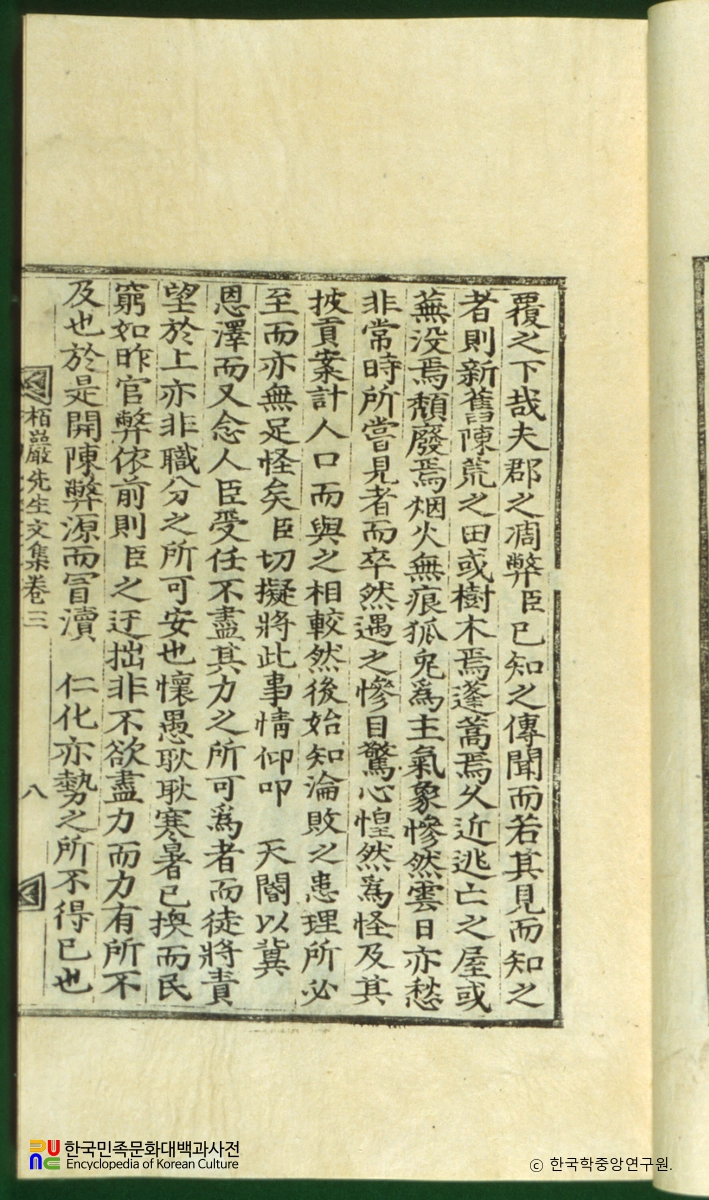 覆之下哉夫郡之凋弊臣已知之傳聞而若其見而知之
者則新舊陳荒之田或樹木焉蓬蒿焉久近逃亡之屋或
蕪没焉頹廢焉烟火無痕狐兔爲主氣象慘然雲日亦愁
非常時所嘗見者而卒然遇之慘目驚心惶然爲怪及其
披貢案計人口而與之相較然後始知淪敗之患理所必
至而亦無足怪矣臣切擬將此事情仰叩 天閽以冀
恩澤而又念人臣受任不盡其力之所可爲者而徒將責
望於上亦非職分之所可安也懷愚耿耿寒暑已換而民
窮如昨官弊依前則臣之迂拙非不欲盡力而力有所不
及也於是開陳弊源而冒瀆 仁化亦勢之所不得已也
栢巖先生文集卷三 八
한국민족문화대백과사전
Encyclopedia of Korean Culture
ⓒ 한국학중앙연구원.